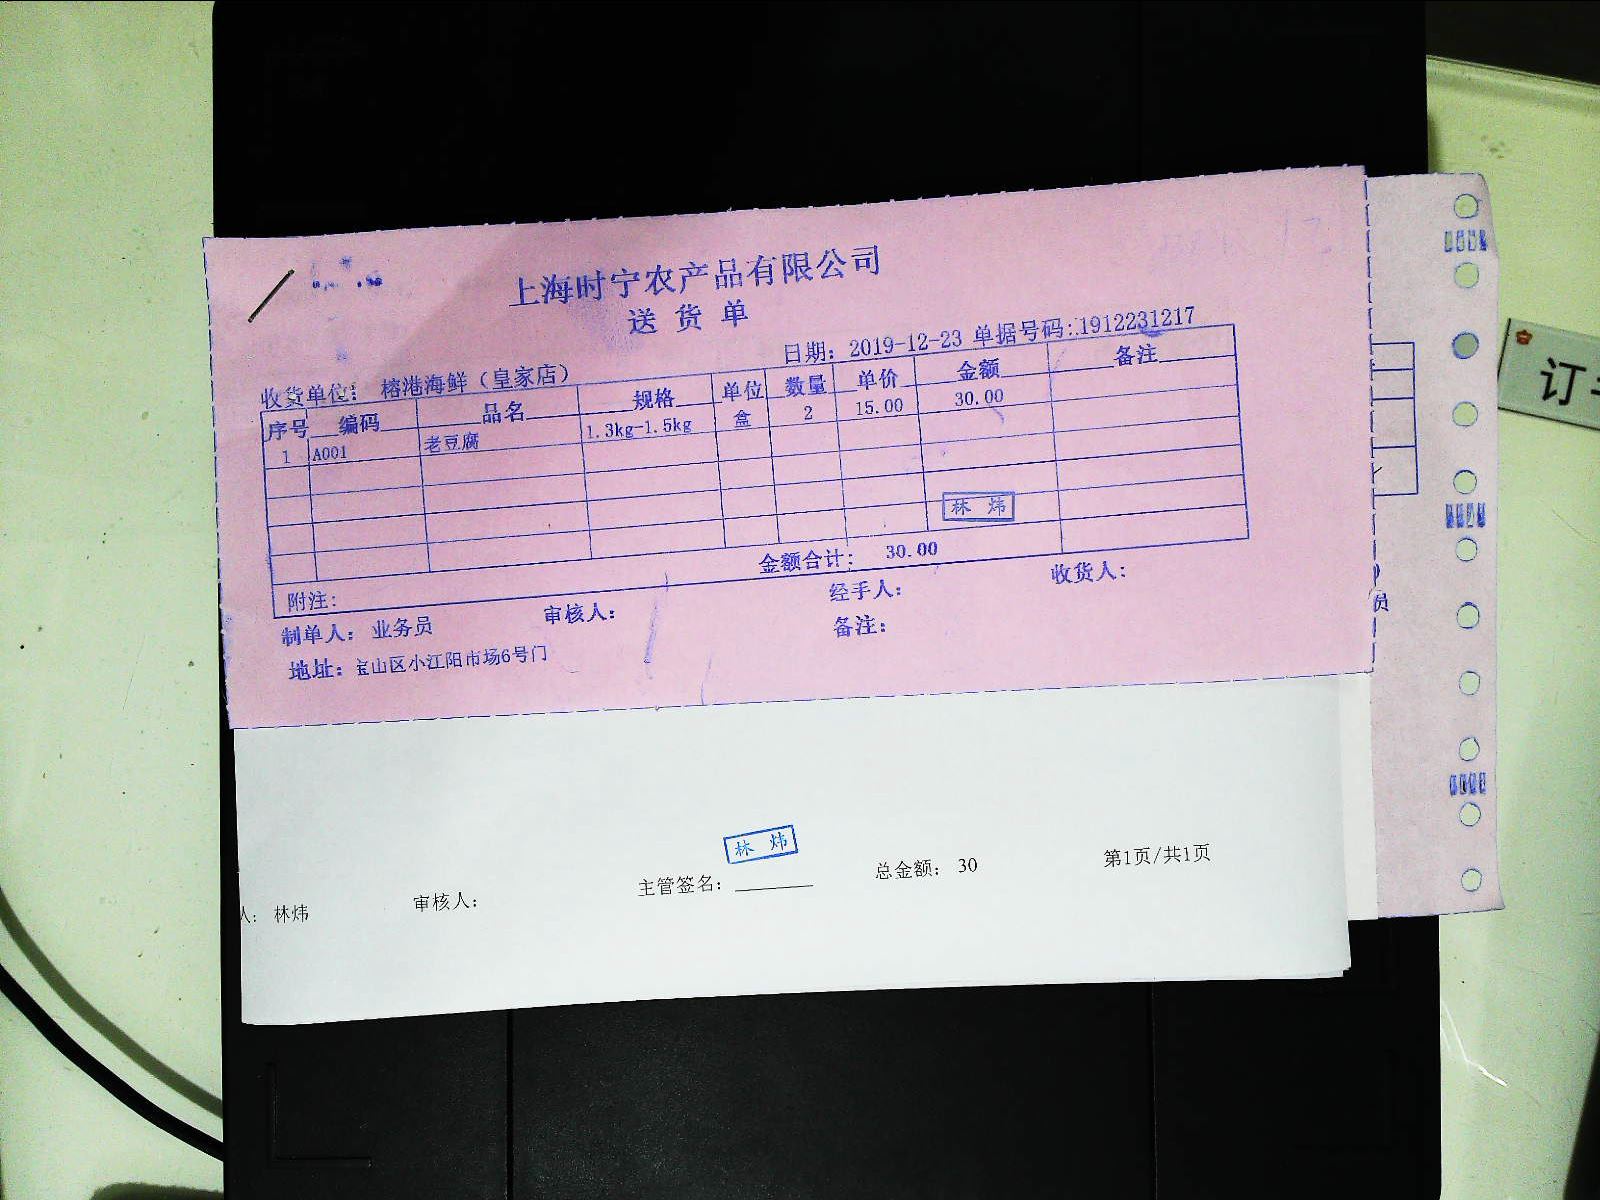 上海时宁农产品有限公司
送 货 单
日期: 2019-12-23 单据号码:1912231217
收货单位: 榕港海鲜(皇家店)
序号 编码 品名 规格 单位 数量 单价 金额 备注
1 A001 老豆腐 1.3kg-1.5kg 盒 2 15.00 30.00
林 炜
金额合计: 30.00
附注:
制单人: 业务员 审核人: 经手人: 收货人:
地址: 宝山区小江阳市场6号门 备注:
员
林 炜
人: 林炜 审核人: 主管签名: 总金额: 30 第1页/共1页
订